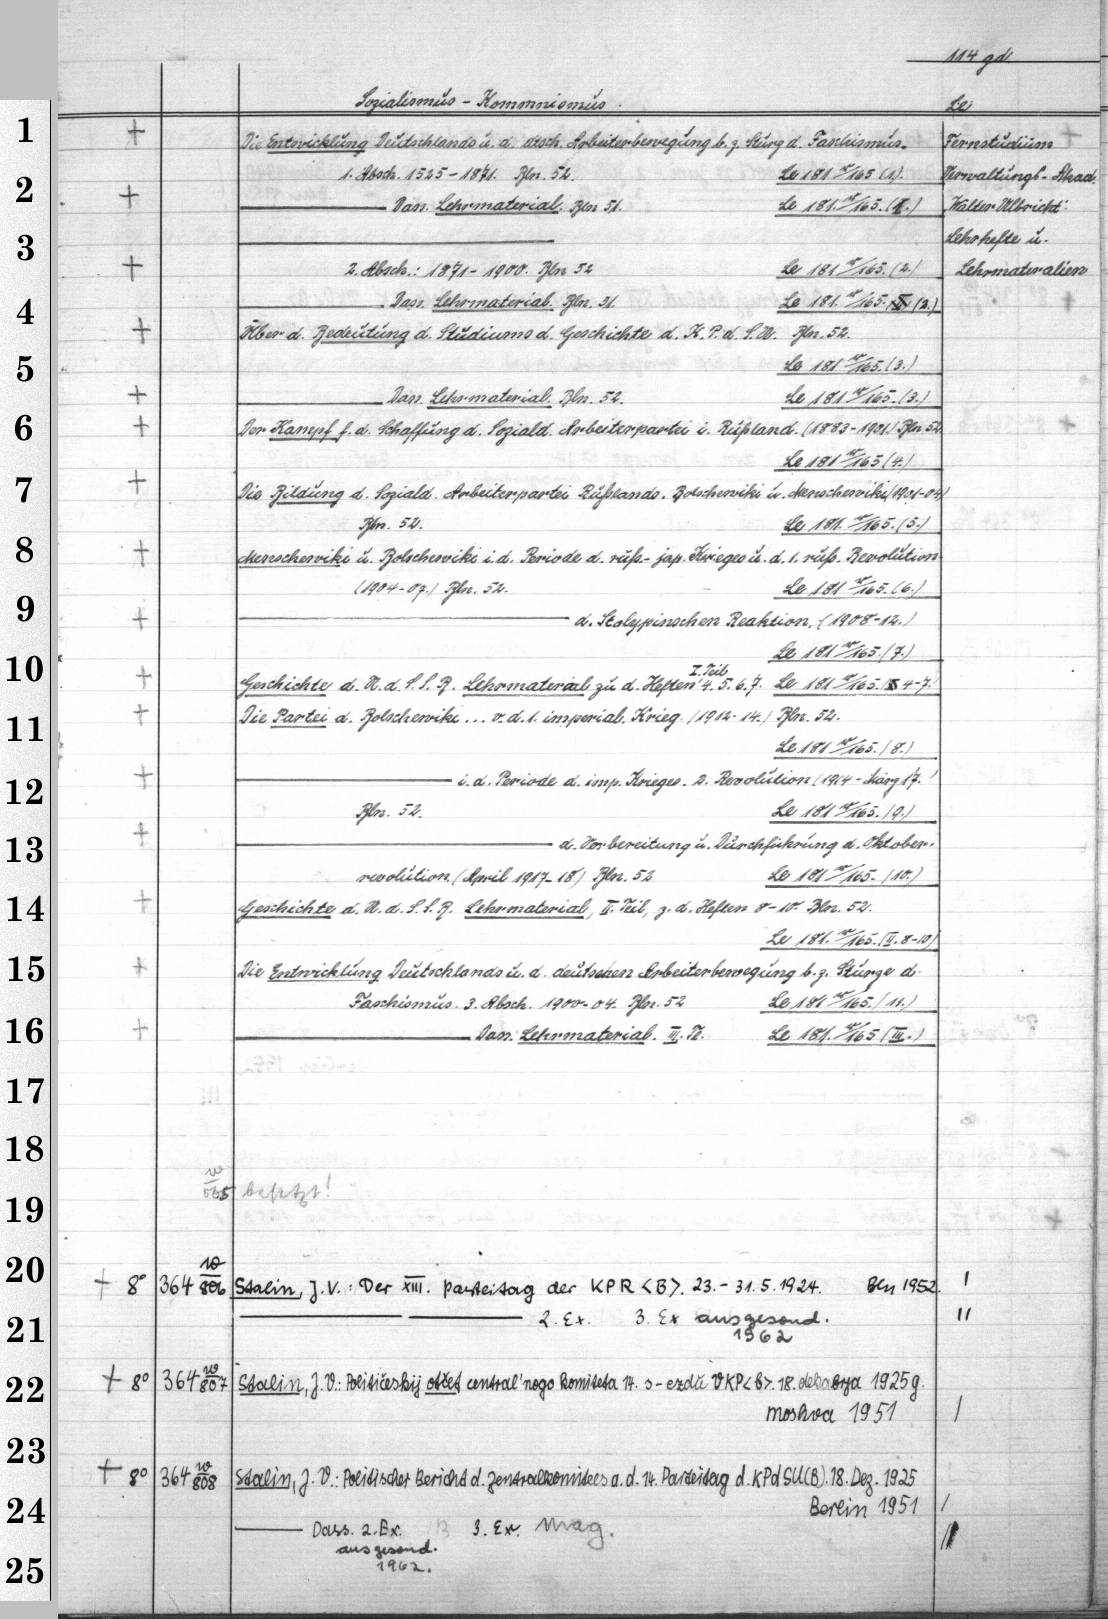 114 gd.
Sozialismus - Kommunismus.
Le
1
+
Die Entwicklung Deutschlands u. d. dtsch. Arbeiterbewegung b. z. Sturz d. Faschismus.
Fernstudium
1. Absch. 1525 - 1871. Bln. 52. Le 181 w/165 (1).
Verwaltungs-Akad.
2
+
Dass. Lehrmaterial. Bln 51. Le 181. w/165. (I.)
Walter Ulbricht:
3
Lehrhefte u.
+
2. Absch.: 1871 - 1900. Bln 52 Le 181 w/165. (2.)
Lehrmaterialien
4
Dass. Lehrmaterial. Bln. 51. Le 181. w/165. (2.)
+
Über d. Bedeutung d. Studiums d. Geschichte d. K. P. d. S. U. Bln. 52.
5
Le 181 w/165. (3.)
+
Dass. Lehrmaterial. Bln. 52. Le 181 w/165. (3.)
6
+
Der Kampf f. d. Schaffung d. Soziald. Arbeiterpartei i. Rußland. (1883-1901.) Bln 52
Le 181 w/165 (4.)
7
+
Die Bildung d. Soziald. Arbeiterpartei Rußlands. Bolschewiki u. Menschewiki (1901-04)
Bln. 52. Le 181. w/165. (5.)
8
+
Menschewiki u. Bolschewiki i. d. Periode d. ruß.-jap. Krieges u. d. 1. ruß. Revolution
(1904-07.) Bln. 52. Le 181 w/165. (6.)
9
+
d. Stolypinschen Reaktion. (1908-12.)
Le 181 w/165. (7.)
10
+
Geschichte d. U. d. S. S. R. Lehrmaterial I. Teil zu d. Heften 4. 5. 6. 7. Le 181 w/165. 4-7.
11
+
Die Partei d. Bolschewiki ... v. d. 1. imperial. Krieg. (1912-14.) Bln. 52.
Le 181 w/165. (8.)
12
+
i. d. Periode d. imp. Krieges. 2. Revolution (1914 - März 17.)
Bln. 52. Le 181 w/165. (9.)
13
+
d. Vorbereitung u. Durchführung d. Oktober-
revolution (April 1917-18) Bln. 52 Le 181 w/165. (10.)
14
+
Geschichte d. U. d. S. S. R. Lehrmaterial, II. Teil, z. d. Heften 8-10. Bln. 52.
Le 181. w/165. (II. 8-10)
15
+
Die Entwicklung Deutschlands u. d. deutschen Arbeiterbewegung b. z. Sturze d.
Faschismus. 3. Absch. 1900-04. Bln. 52 Le 181 w/165. (11.)
16
+
Dass. Lehrmaterial. III. Tl. Le 181. w/165 (III.)
17
18
w/565 besetzt!
19
20
+ 8° 364 w/806 Stalin, J. V.: Der XIII. Parteitag der KPR <B>. 23.-31.5.1924. Bln 1952. I
21
2. Ex. 3. Ex ausgesond. II
1962
22
+ 8° 364 w/807 Stalin, J. V.: Političeskij otčet central'nogo komiteta 14. s-ezdu VKP<b>. 18. dekabrja 1925 g.
Moskva 1951 /
23
+ 8° 364 w/808 Stalin, J. V.: Politischer Bericht d. Zentralkomitees a. d. 14. Parteitag d. KPdSU(B). 18. Dez. 1925
24
Berlin 1951 /
Dass. 2. Ex. 3. Ex. Mag. //
ausgesond.
25
1962.